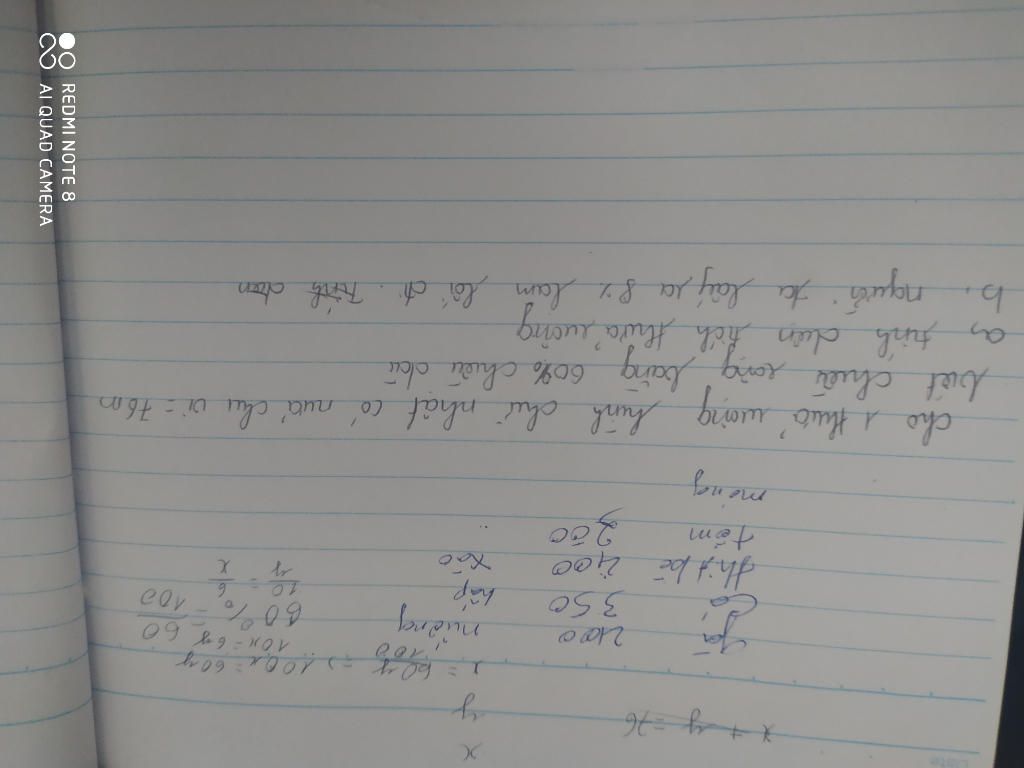 Date
x
x + y = 76
y
x = 60y/100 => 100x = 60y
10x = 6y
gà 2100 nướng 60% = 60/100
Cá 350 hấp
10/y = 6/x
thịt bò 2400 xào
tôm 200
măng
cho 1 thửa ruộng hình chữ nhật có nửa chu vi = 76m
biết chiều rộng bằng 60% chiều dài
a, tính diện tích thửa ruộng
b. người ta lấy ra 8% làm lối đi. Tính diện
REDMI NOTE 8
AI QUAD CAMERA